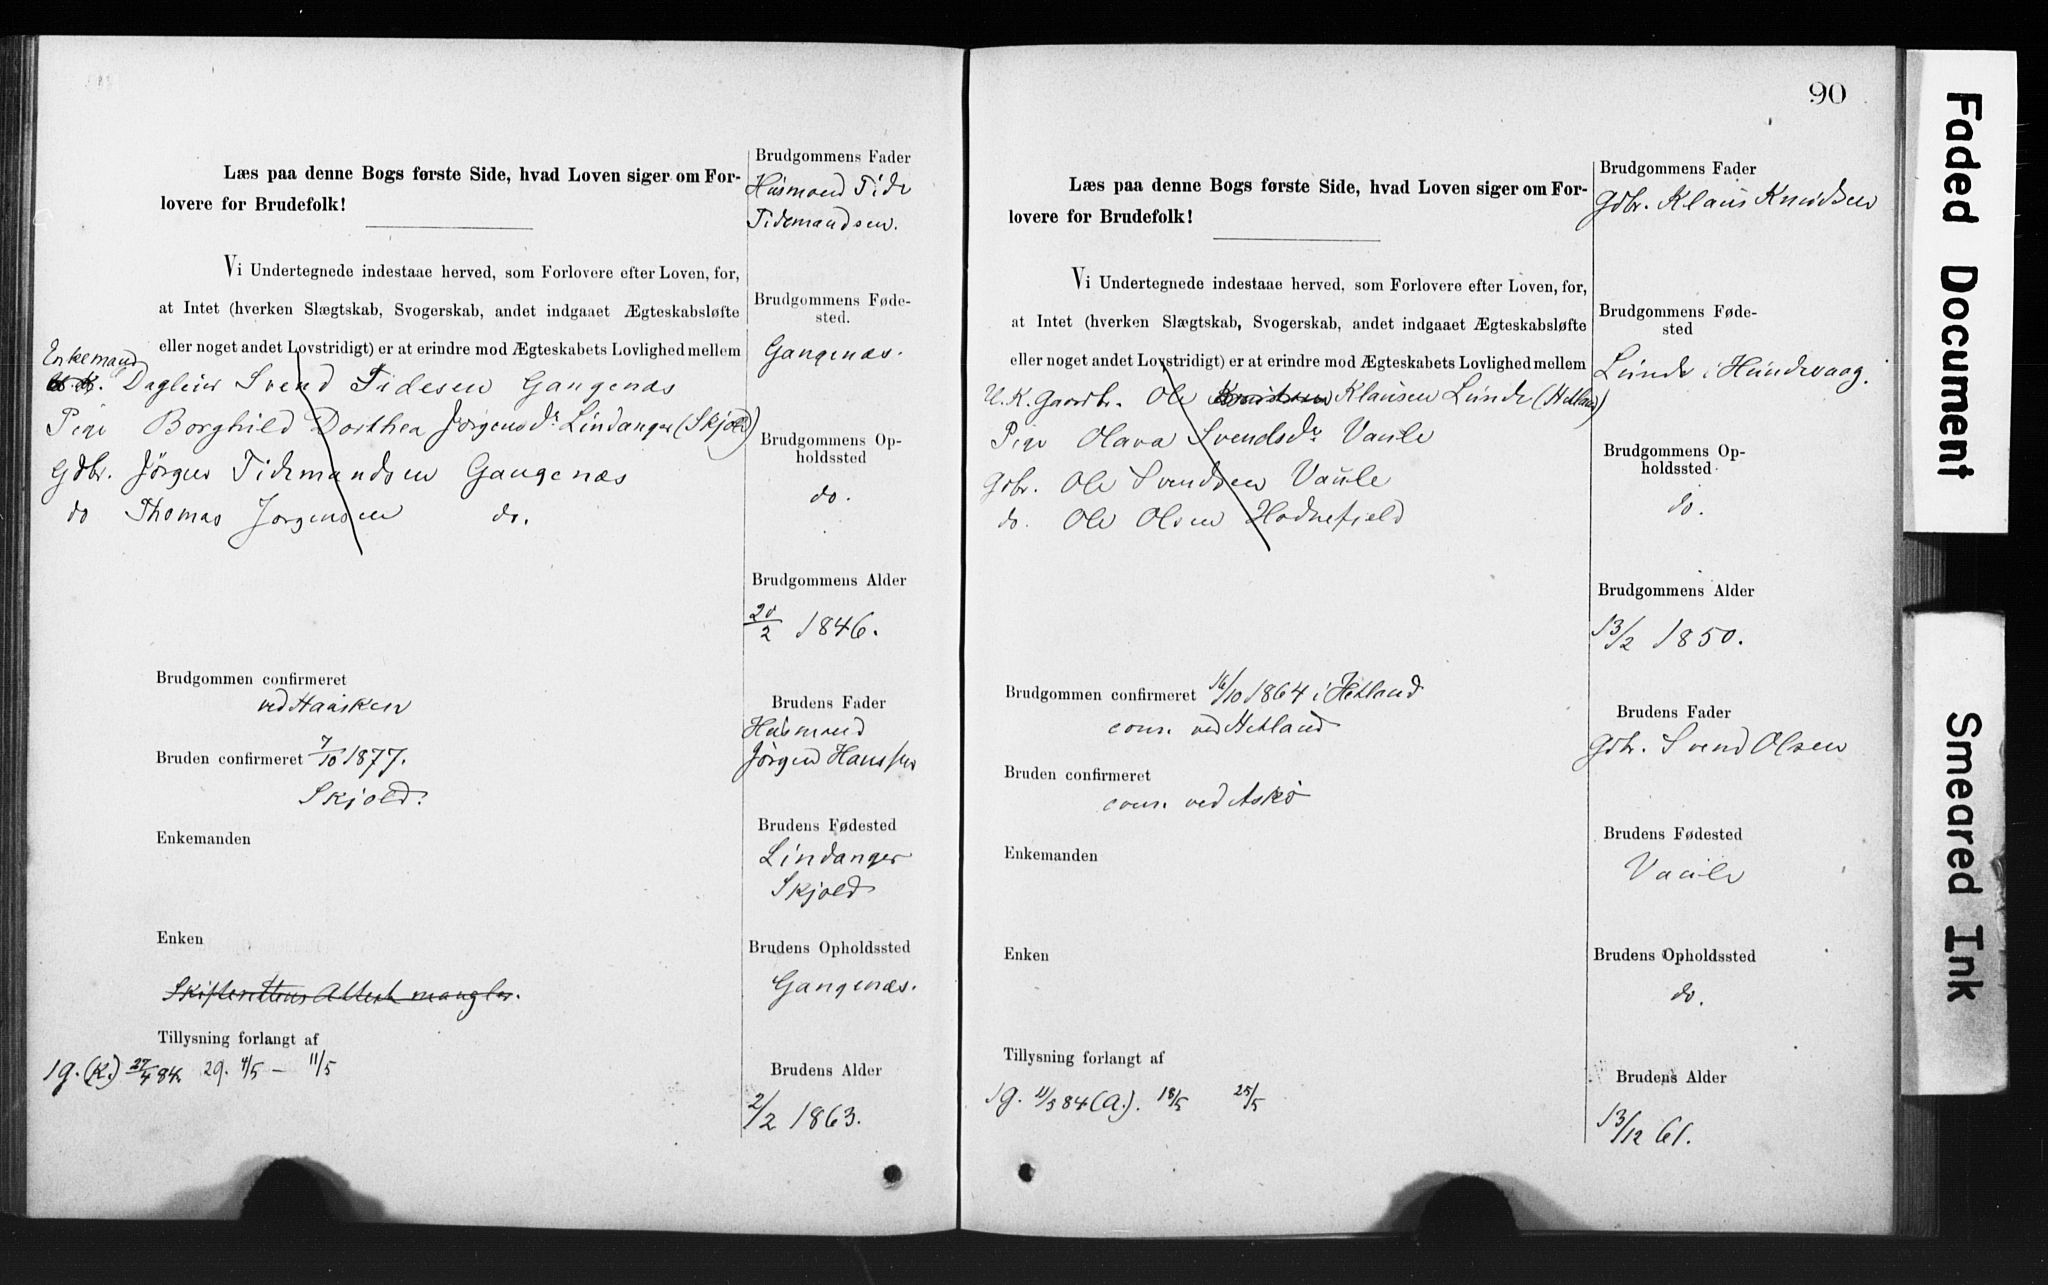 Læs paa denne Bogs første Side, hvad Loven siger om For-
lovere for Brudefolk!
Vi Undertegnede indestaae herved, som Forlovere efter Loven, for,
at Intet (hverken Slægtskab, Svogerskab, andet indgaaet Ægteskabsløfte
eller noget andet Lovstridigt) er at erindre mod Ægteskabets Lovlighed mellem
Enkemand
Dagleier Svend Tidesen Gangenæs
Pige Borghild Dorthea Jørgensdr. Lindanger (Skjold)
Gdbr. Jörgen Tidemandsen Gangenæs
do Thomas Jørgensen do.
Brudgommen confirmeret
ved Haasken
Bruden confirmeret 7/10 1877.
Skjold.
Enkemanden
Enken
Skifterettens Attest mangler.
Tillysning forlangt af
1g. (K.) 27/4 84. 2g. 4/5 — 11/5
Brudgommens Fader
Husmand Tide
Tidemandsen.
Brudgommens Føde-
sted.
Gangenæs.
Brudgommens Op-
holdssted
do.
Brudgommens Alder
20/2 1846.
Brudens Fader
Husmand
Jørgen Hanssen
Brudens Fødested
Lindanger
Skjold
Brudens Opholdssted
Gangenæs.
Brudens Alder
2/2 1863.
90
Læs paa denne Bogs første Side, hvad Loven siger om For-
lovere for Brudefolk!
Vi Undertegnede indestaae herved, som Forlovere efter Loven, for,
at Intet (hverken Slægtskab, Svogerskab, andet indgaaet Ægteskabsløfte
eller noget andet Lovstridigt) er at erindre mod Ægteskabets Lovlighed mellem
U. K. Gaardbr. Ole Klausen Lunde (Hetland)
Pige Olava Svendsdr. Vaule
Gdbr. Ole Svendsen Vaule
do. Ole Olsen Hodnefjeld
Brudgommen confirmeret 16/10 1864 i Hetland
com. ved Hetland
Bruden confirmeret
com. ved Askø
Enkemanden
Enken
Tillysning forlangt af
1g. 11/5 84 (A.). 18/5 25/5
Brudgommens Fader
Gdbr. Klaus Knudsen
Brudgommens Føde-
sted
Lunde i Hundevaag.
Brudgommens Op-
holdssted
do.
Brudgommens Alder
13/2 1850.
Brudens Fader
Gdbr. Svend Olsen
Brudens Fødested
Vaule
Brudens Opholdssted
do.
Brudens Alder
13/12 61.
Faded Document
Smeared Ink